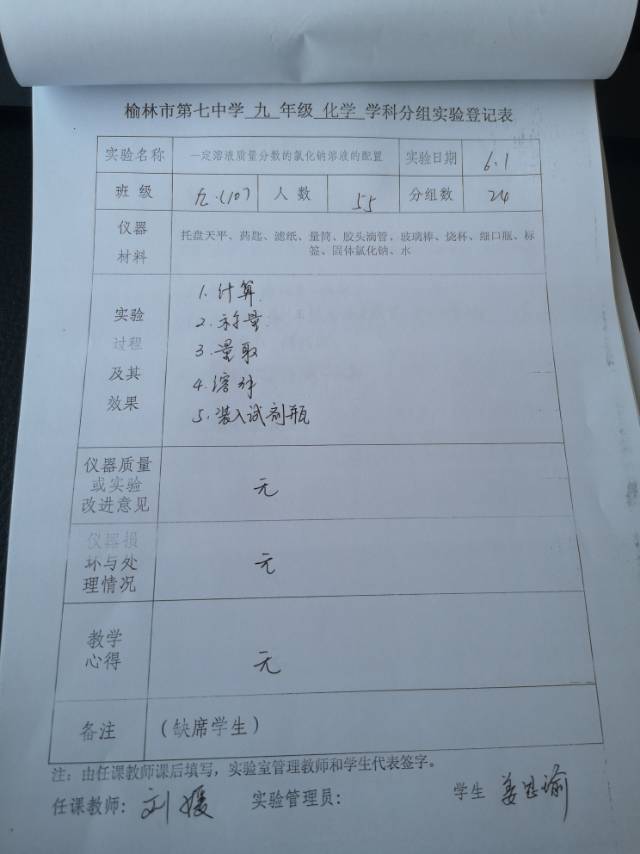 榆林市第七中学 九 年级 化学 学科分组实验登记表
实验名称 一定溶液质量分数的氯化钠溶液的配置 实验日期 6.1
班 级 九.(10) 人 数 55 分组数 24
仪器 材料 托盘天平、药匙、滤纸、量筒、胶头滴管、玻璃棒、烧杯、细口瓶、标
签、固体氯化钠、水
实验
过程
及其
效果
1.计算
2.称量
3.量取
4.溶解
5.装入试剂瓶
仪器质量
或实验
改进意见
无
仪器损
坏与处
理情况
无
教学
心得
无
备注 (缺席学生)
注：由任课教师课后填写，实验室管理教师和学生代表签字。
任课教师: 刘媛 实验管理员: 学生 姜思瑜